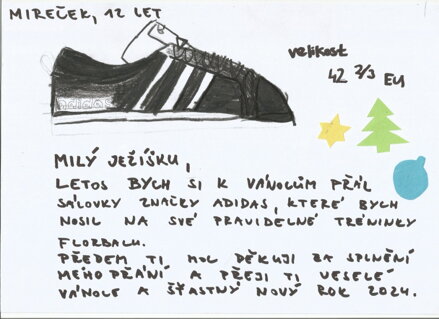 MIREČEK, 12 LET
velikost
42 2/3 EU
adidas
MILÝ JEŽÍŠKU,
LETOS BYCH SI K VÁNOCŮM PŘÁL
SÁLOVKY ZNAČKY ADIDAS, KTERÉ BYCH
NOSIL NA SVÉ PRAVIDELNÉ TRÉNINKY
FLORBALU.
PŘEDEM TI MOC DĚKUJI ZA SPLNĚNÍ
MÉHO PŘÁNÍ A PŘEJI TI VESELÉ
VÁNOCE A ŠŤASTNÝ NOVÝ ROK 2024.